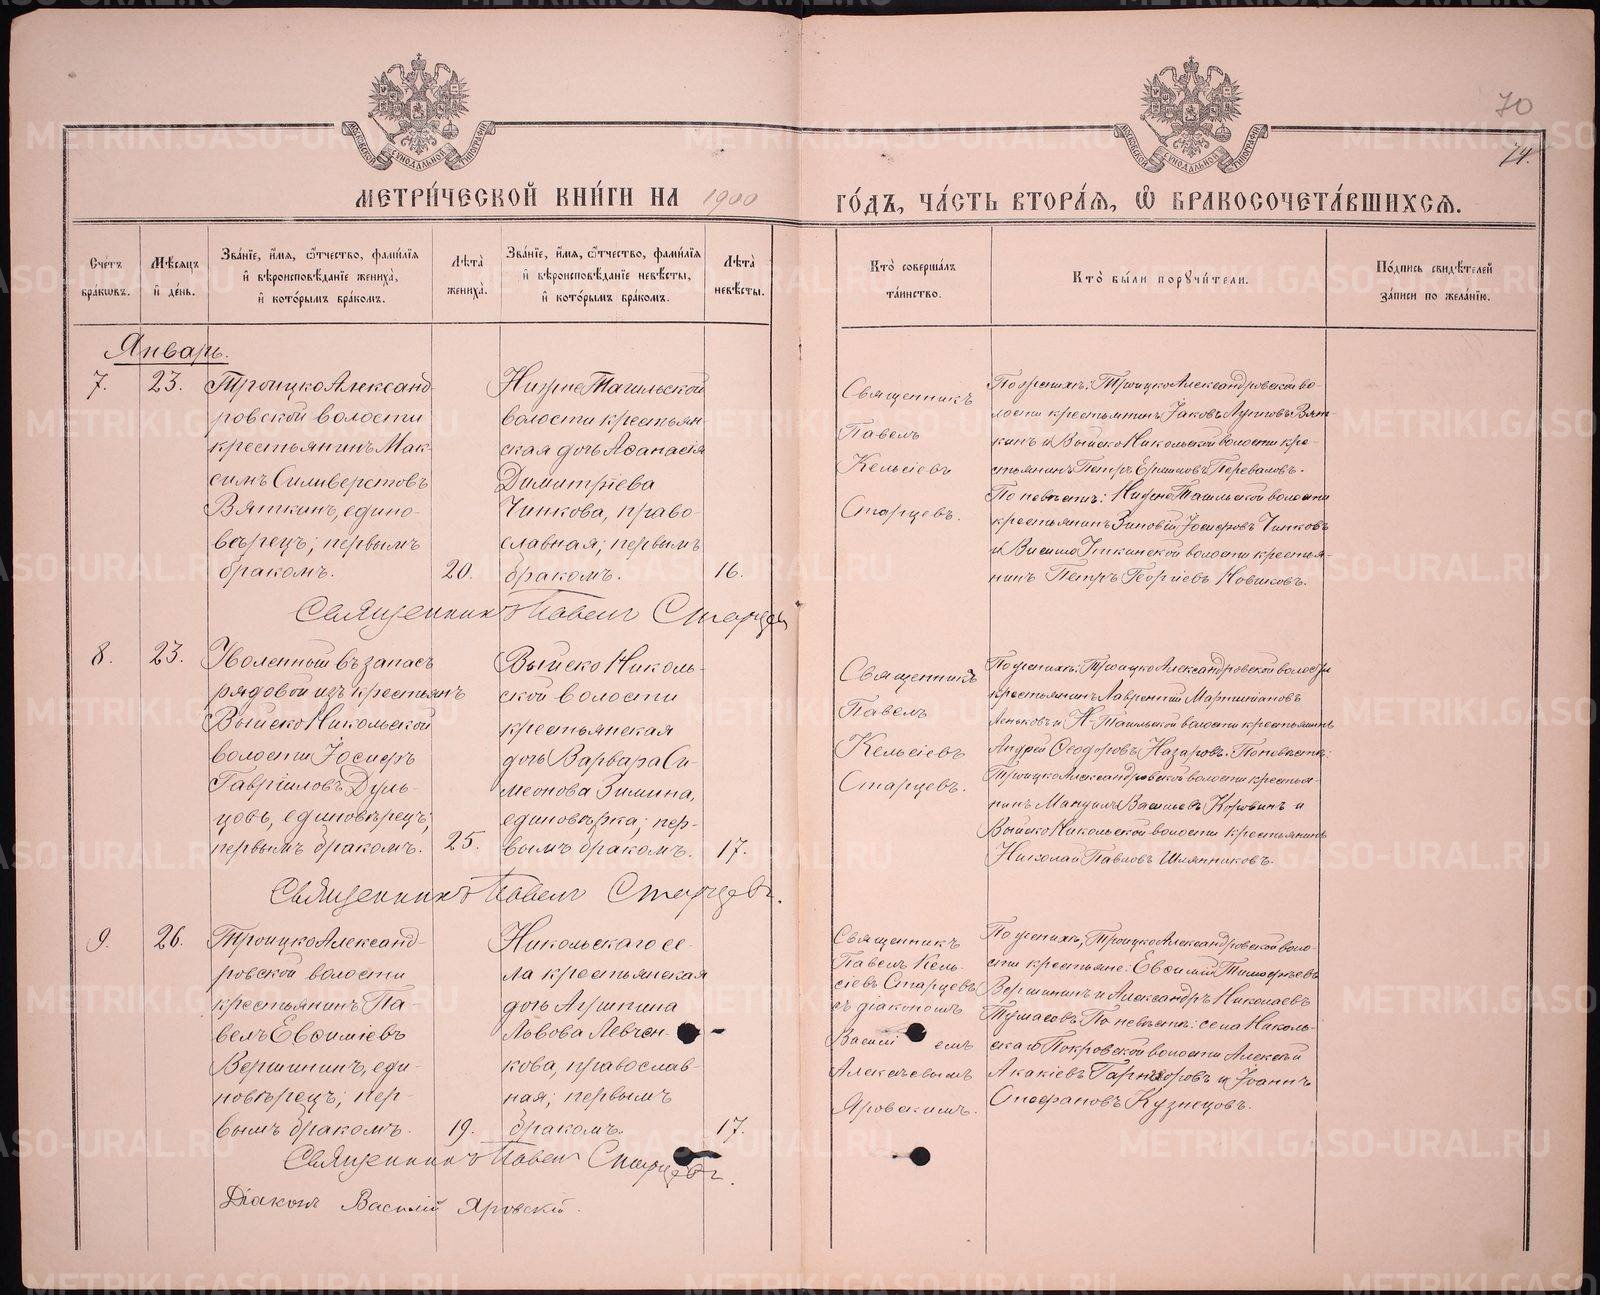 70
74.
МОСКОВСКОЙ СУНОДАЛЬНОЙ ТИПОГРАФІИ
МОСКОВСКОЙ СУНОДАЛЬНОЙ ТИПОГРАФІИ
МЕТРИ́ЧЕСКОЙ КНИ́ГИ НА 1900 ГО́ДЪ, ЧА́СТЬ ВТОРА́Ѧ, Ѡ҆ БРАКОСОЧЕТА́ВШИХСѦ.
Сче́тъ бра́кѡвъ.
Мѣ́сяцъ и҆ де́нь.
Зва́нїе, и҆́мя, ѻ҆́тчество, фами́лїя и҆ вѣроисповѣ́данїе жениха̀, и҆ кото́рымъ бра́комъ.
Лѣ́та жениха̀.
Зва́нїе, и҆́мя, ѻ҆́тчество, фами́лїя и҆ вѣроисповѣ́данїе невѣ́сты, и҆ кото́рымъ бра́комъ.
Лѣ́та невѣ́сты.
Кто̀ соверша́лъ та́инство.
Кто̀ бы́ли поручи́тели.
По́дпись свидѣ́телей за́писи по жела́нїю.
Январь.
7.
23.
ТроицкоАлександ-
ровской волости
крестьянинъ Мак-
симъ Сильверстовъ
Вяткинъ, едино-
вѣрецъ; первымъ
бракомъ.
20.
НижнеТагильской
волости крестьян
ская дочь Аѳанасія
Димитріева
Чинкова, право-
славная; первымъ
бракомъ.
16.
Священникъ
Павелъ
Кельсіевъ
Старцевъ.
По женихѣ: ТроицкоАлександровской во-
лости крестьянинъ Іаковъ Луповъ Вят-
кинъ и ВыйскоНикольской волости кре-
стьянинъ Петръ Ермиловъ Переваловъ.
По невѣстѣ: НижнеТагильской волости
крестьянинъ Зиновій Іосифовъ Чинковъ
и ВисимоУткинской волости крестья-
нинъ Петръ Георгіевъ Новиковъ.
Священникъ Павелъ Старцевъ
8.
23.
Уволенный въ запасъ
рядовой изъ крестьянъ
ВыйскоНикольской
волости Іосифъ
Гавріиловъ Дуль-
цовъ, единовѣрецъ;
первымъ бракомъ.
25.
ВыйскоНиколь-
ской волости
крестьянская
дочь Варвара Си-
меонова Зимина,
единовѣрка; пер-
вымъ бракомъ.
17.
Священникъ
Павелъ
Кельсіевъ
Старцевъ.
По женихѣ: ТроицкоАлександровской волости
крестьянинъ Лаврентій Мартиніановъ
Леньковъ и Н-Тагильской волости крестьянинъ
Андрей Ѳеодоровъ Назаровъ. По невѣстѣ:
ТроицкоАлександровской волости крестья-
нинъ Мануилъ Васильевъ Коровинъ и
ВыйскоНикольской волости крестьянинъ
Николай Павловъ Шляпниковъ.
Священникъ Павелъ Старцевъ.
9.
26.
ТроицкоАлександ-
ровской волости
крестьянинъ Па-
велъ Евѳиміевъ
Вершининъ, еди-
новѣрецъ; пер-
вымъ бракомъ.
19.
Никольскаго се-
ла крестьянская
дочь Агрипина
Львова Левчен-
кова, православ-
ная; первымъ
бракомъ.
17.
Священникъ
Павелъ Кель-
сіевъ Старцевъ
съ діакономъ
Василіемъ
Алексѣевымъ
Яровскимъ.
По женихѣ, ТроицкоАлександровской воло-
сти крестьяне: Евѳимій Тимоѳѣевъ
Вершининъ и Александръ Николаевъ
Тумасовъ. По невѣстѣ: села Николь-
скаго Покровской волости Алексѣй
Акакіевъ и Іоаннъ
Стефановъ Кузнецовъ.
Священникъ Павелъ Старцевъ.
Діаконъ Василій Яровскій.
METRIKI.GASO-URAL.RU